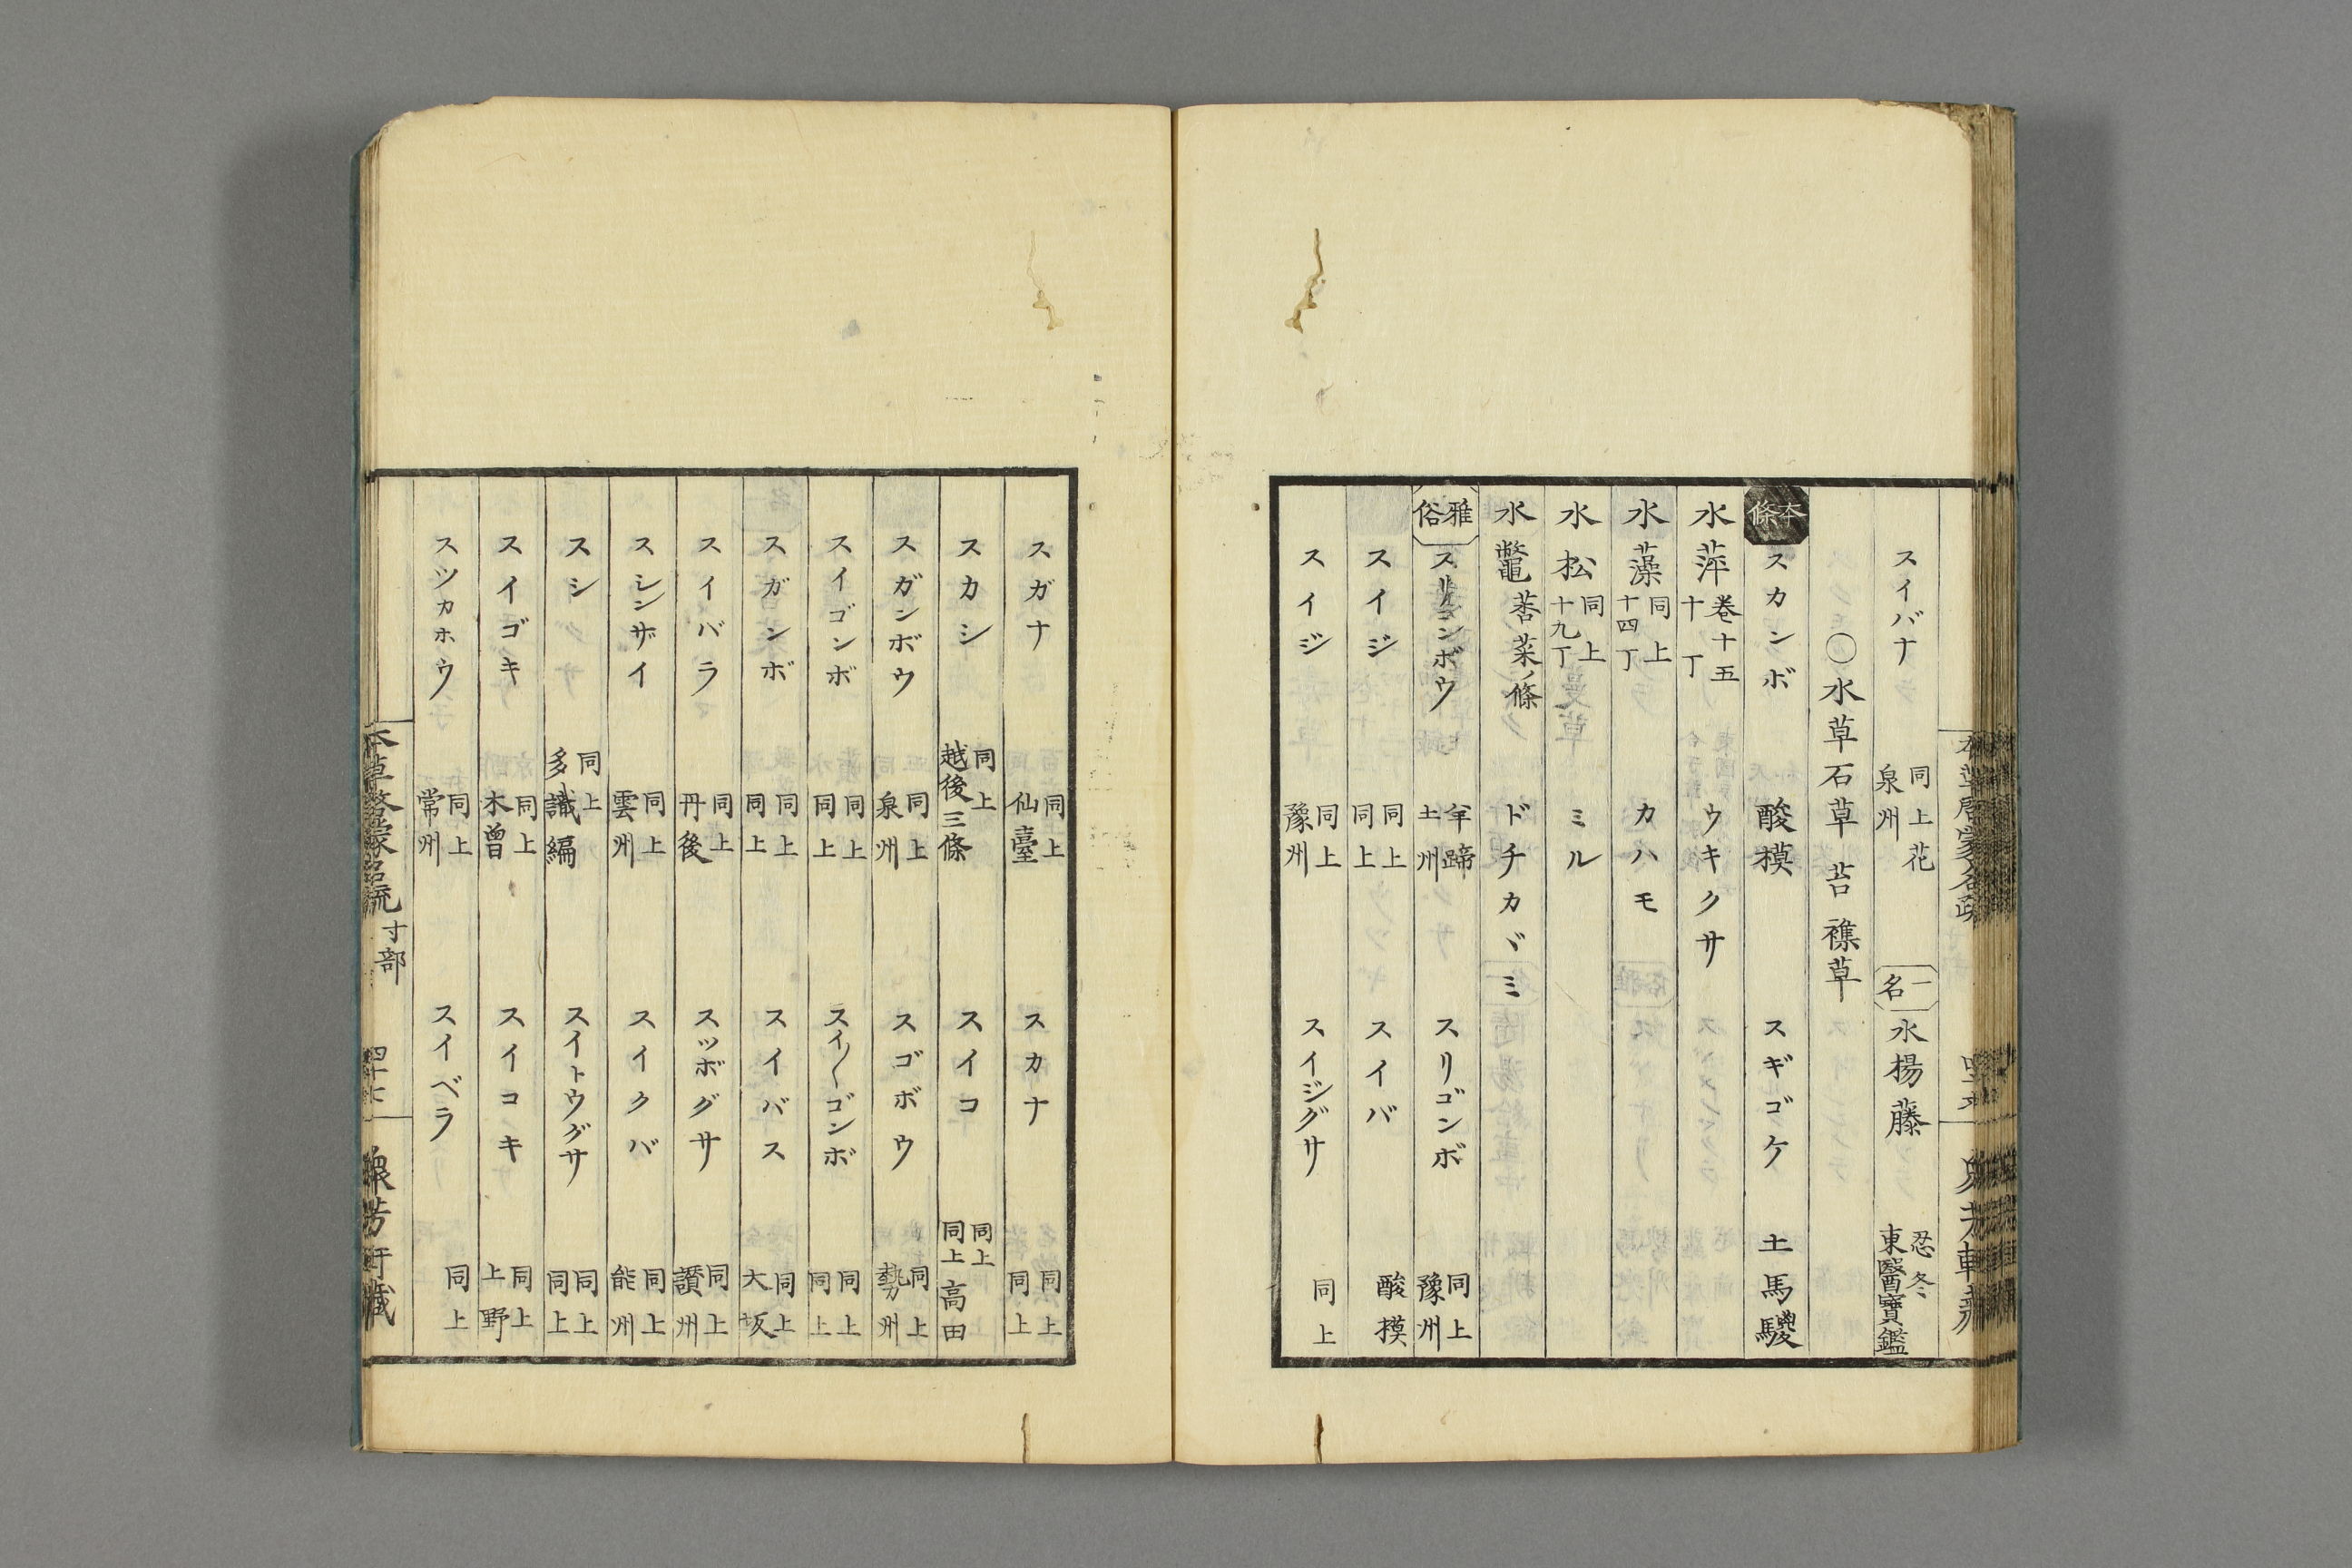 スイバナ 同上花 泉州 一名 水楊藤 忍冬 東醫寶鑑
〇水草石草 苔 襍草
本條 スカンボ 酸模 スギゴケ 土馬騣
水萍 卷十五 十丁 ウキクサ
水藻 同上 十四丁 カハモ
水松 同上 十九丁 ミル
水鼈 莕菜ノ條 ドチカヾミ
雅俗 スリゴンボウ 羊蹄 土州 スリゴンボ 同上 豫州
スイジ 同上 同上 スイバ 酸模
スイジ 同上 豫州 スイジグサ 同上
スガナ 同上 仙臺 スカナ 同上 同上
スカシ 同上 越後三條 スイコ 同上 同上高田
スガンボウ 同上 泉州 スゴボウ 同上 勢州
スイゴンボ 同上 同上 スイ〱ゴンボ 同上 同上
スガンボ 同上 同上 スイバス 同上 大坂
スイバラ 同上 丹後 スッボグサ 同上 讃州
スシンザイ 同上 雲州 スイクバ 同上 能州
スシ 同上 多識編 スイトウグサ 同上 同上
スイゴキ 同上 木曾 スイコキ 同上 上野
スツカホウ 同上 常州 スイベラ 同上
本草啓蒙名疏 寸部 四十七